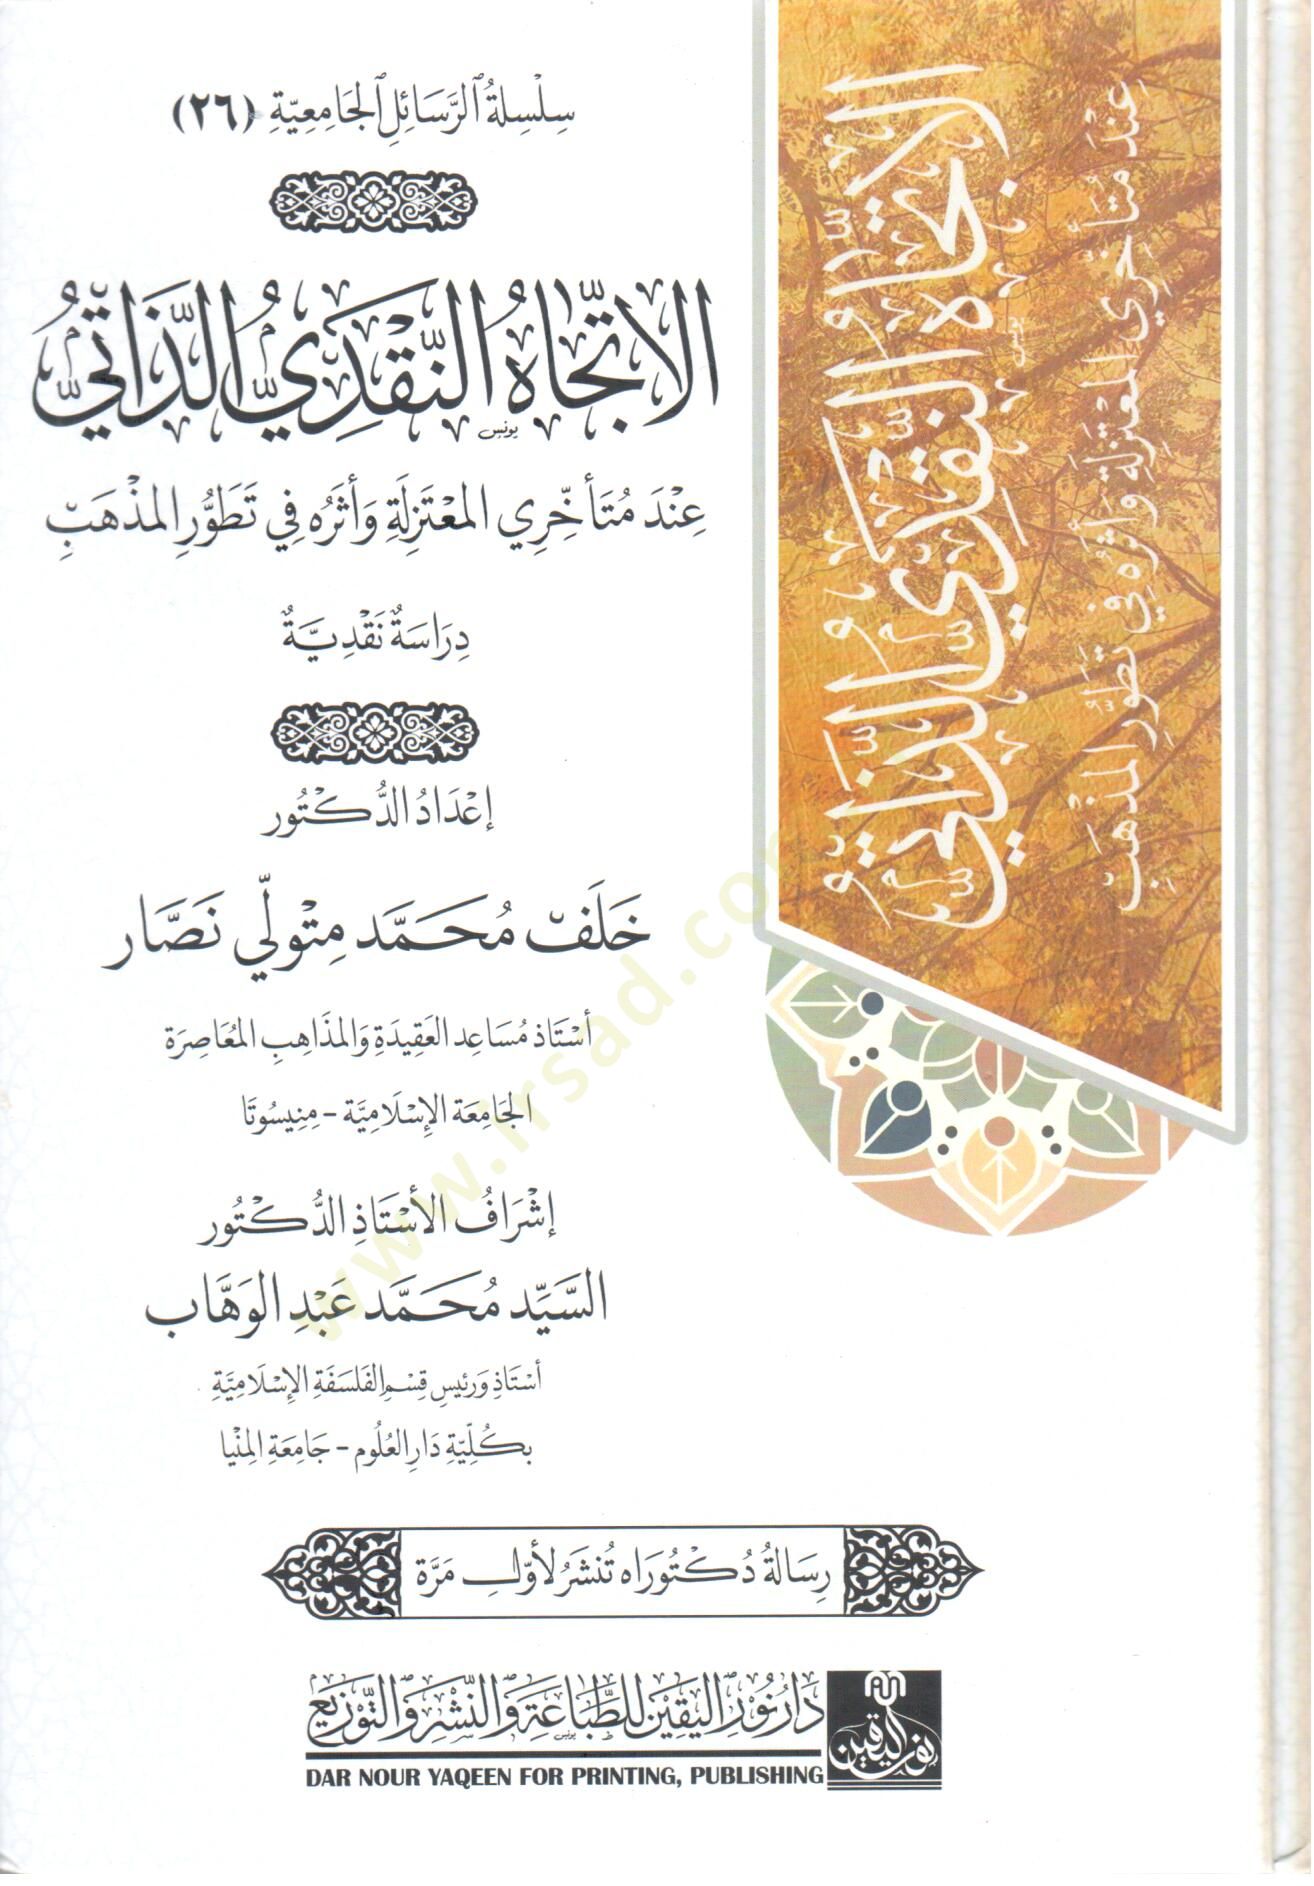 سِلْسِلَةُ الرَّسَائِلِ الجَامِعِيَّةِ (٢٦)
الاتِّجَاهُ النَّقْدِيُّ الذَّاتِيُّ
يونس
عِنْدَ مُتَأَخِّرِي المُعْتَزِلَةِ وَأَثَرُه فِي تَطَوُّرِ المَذْهَبِ
دِرَاسَةٌ نَقْدِيَّةٌ
إعْدَادُ الدُّكْتُور
خَلَف مُحَمَّد مِتْوِلِّي نَصَّار
أسْتَاذ مُسَاعِد العَقِيدَةِ وَالمَذَاهِبِ المُعَاصِرَة
الجَامِعَة الإِسْلَامِيَّة - مِنِيسُوتَا
إشْرَافُ الأُسْتَاذِ الدُّكْتُور
السَّيِّد مُحَمَّد عَبْدِ الوَهَّاب
أسْتَاذ وَرَئِيس قِسْمِ الفَلْسَفَةِ الإِسْلَامِيَّةِ
بِكُلِّيَّةِ دَارِ العُلُوم - جَامِعَةِ المِنْيَا
رِسَالَةُ دُكْتُورَاه تُنْشَرُ لأَوَّلِ مَرَّة
دَارُ نُورِ اليَقِينِ لِلطِّبَاعَةِ وَالنَّشْرِ وَالتَّوْزِيعِ
يونس
DAR NOUR YAQEEN FOR PRINTING, PUBLISHING
نور اليقين
الاتِّجَاهُ النَّقْدِيُّ الذَّاتِيُّ
يونس
عِنْدَ مُتَأَخِّرِي المُعْتَزِلَةِ وَأَثَرُه فِي تَطَوُّرِ المَذْهَبِ
www.irsad.com